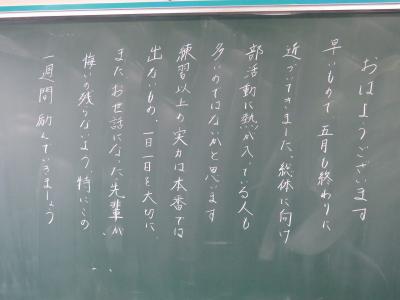 おはようございます
早いもので 五月も終わりに
近づいてきました、総体に向け
部活動に熱が入っている人も
多いのではないかと思います
練習以上の実力は本番では
出ないもの、一日一日を大切に、
またお世話になった先輩が
悔いの残らないよう 特にこの
一週間 励んでいきましょう